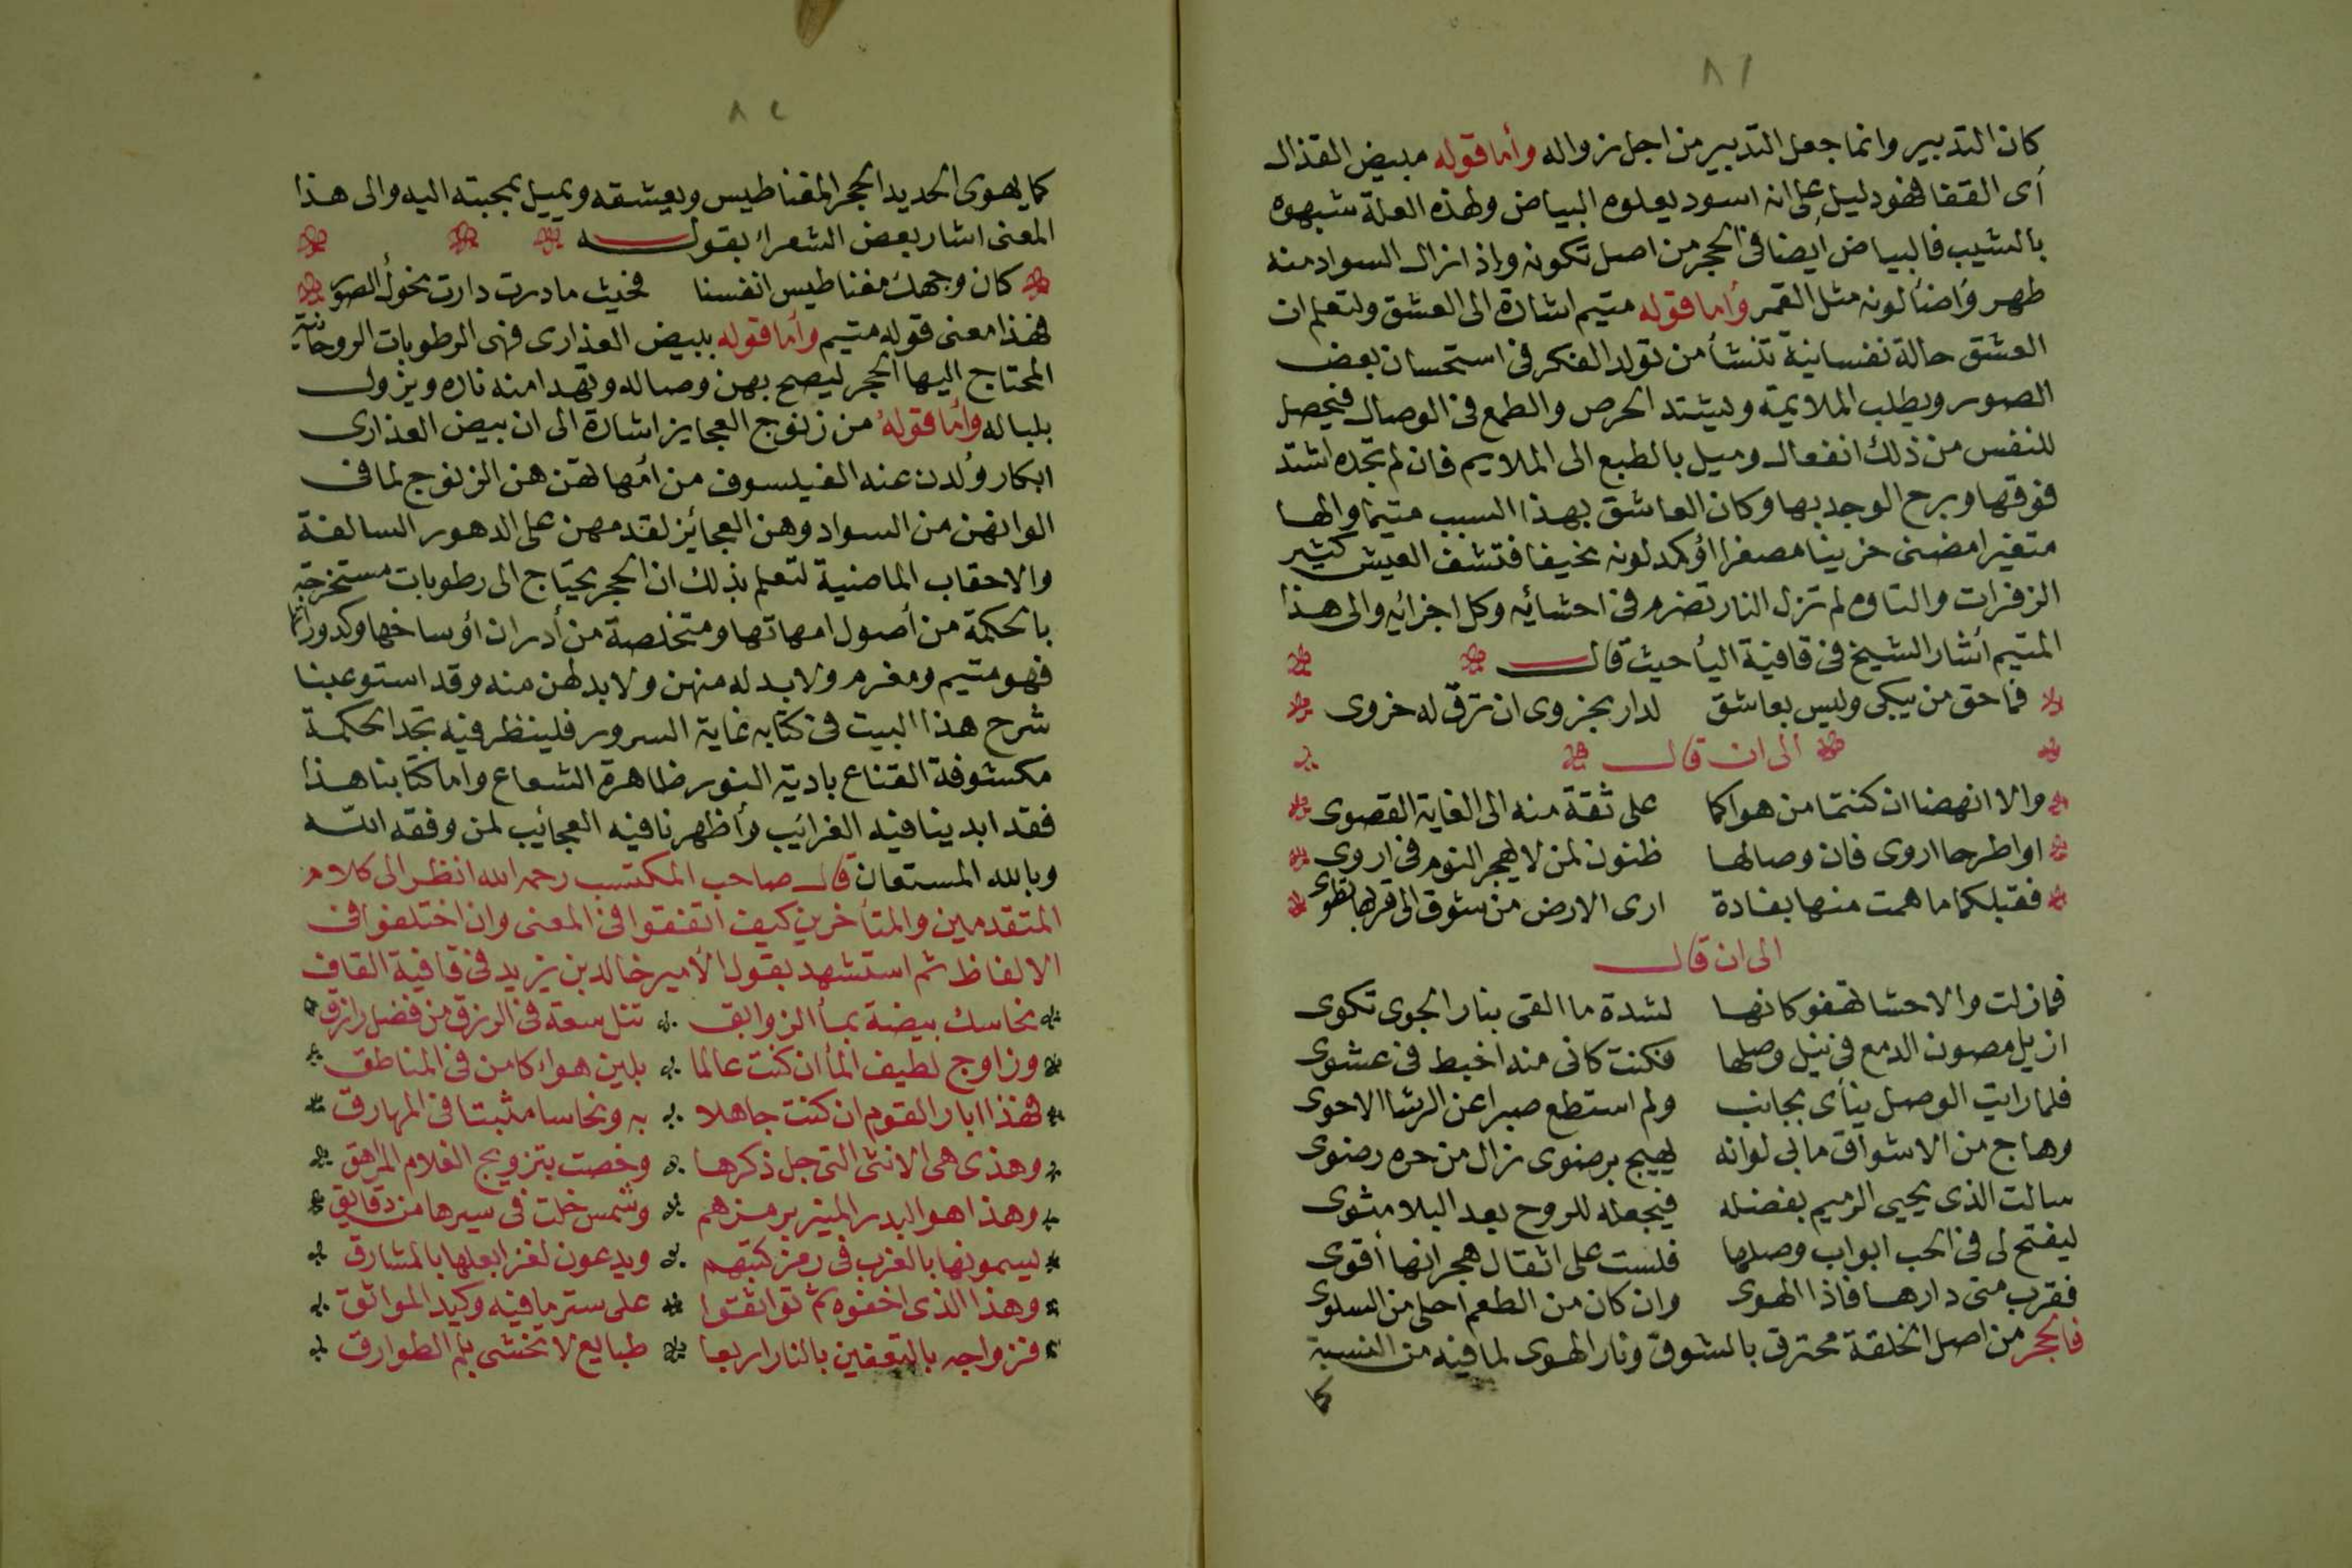 ٨١
كان التدبير وانما جعل التدبير من اجل زواله وأما قوله مبيض القذال
أى القفا فهو دليل على انه اسود يعلوه البياض ولهذه العلة شبهوه
بالشيب فالبياض أيضا فى الحجر من اصل تكونه وإذا زال السواد منه
ظهر وأضأ لونه مثل القمر وأما قوله متيم اشارة الى العشق ولتعلم ان
العشق حالة نفسانية تنشأ من تولد الفكر فى استحسان بعض
الصور ويطلب الملايمة ويشتد الحرص والطمع فى الوصال فيحصل
للنفس من ذلك انفعال وميل بالطبع الى الملايم فان لم تجده اشتد
فوقها وبرح الوجد بها وكان العاشق بهذا السبب متيما والها
متغيرا مضنى حزينا مصفرا أوكمد لونه نحيفا قشف العيش كثير
الزفرات والتاوه لم تزل النار تضرم فى احشائه وكل اجزائه والى هذا
المتيم أشار الشيخ فى قافية اليأ حيث قال
فما حق من يبكى وليس بعاشق لدار بحزوى ان ترق له حزوى
الى ان قال
والا انهضنا ان كنتما من هواكما على ثقة منه الى الغاية القصوى
او اطرحا اروى فان وصالها ظنون لمن لا يهجر النوم فى اروى
فقبلكما ما همت منها بغادة ارى الارض من شوق الى قربها تطوى
الى ان قال
فما زلت والاحشا تهفو كانها لشدة ما القى بنار الجوى تكوى
ازيل مصون الدمع فى نيل وصلها فكنت كانى منه اخبط فى عشوى
فلما رايت الوصل ينأى بجانب ولم استطع صبرا عن الرشا الاحوى
وهاج من الاشواق ما بى لوانه يهيج برضوى زال من حره رضوى
سالت الذى يحيى الرميم بفضله فيجعله للروح بعد البلا مثوى
ليفتح لى فى الحب ابواب وصلها فلست على اثقال هجرانها أقوى
فقرب منى دارها فاذا الهوى وان كان من الطعم احلى من السلوى
فالحجر من اصل الخلقة محترق بالشوق ونار الهوى لما فيه من النسبة
كما
٨٢
كما يهوى الحديد الحجر المغناطيس ويعشقه ويميل بمحبته اليه والى هذا
المعنى اشار بعض الشعراء بقوله
كان وجهك مغناطيس انفسنا فحيث ما درت دارت نحوك الصور
فهذا معنى قوله متيم وأما قوله ببيض العذارى فهى الرطوبات الروحانية
المحتاج اليها الحجر ليصح بهن وصاله وتهدا منه ناره ويزول
بلباله وأما قوله من زنوج العجايز اشارة الى ان بيض العذارى
ابكار ولدن عند الفيلسوف من امهاتهن هن الزنوج لما فى
الوانهن من السواد وهن العجائز لقدمهن على الدهور السالفة
والاحقاب الماضية لتعلم بذلك ان الحجر يحتاج الى رطوبات مستخرجة
بالحكمة من أصول امهاتها ومتخلصة من أدران أوساخها وكدوراتها
فهو متيم ومغرم ولا بد له منهن ولا بد لهن منه وقد استوعبنا
شرح هذا البيت فى كتابه غاية السرور فلينظر فيه تجد الحكمة
مكشوفة القناع بادية النور ظاهرة الشعاع واما كتابنا هذا
فقد ابدينا فيه الغرائب وأظهرنا فيه العجائب لمن وفقه الله
وبالله المستعان قال صاحب المكتسب رحمه الله انظر الى كلام
المتقدمين والمتأخرين كيف اتفقوا فى المعنى وان اختلفوا فى
الالفاظ ثم استشهد بقول الأمير خالد بن يزيد فى قافية القاف
نحاسك بيضة بمأ الزوابق تنل سعة فى الرزق من فضل رازق
وزاوج لطيف المأ ان كنت عالما بلين هواء كامن فى المناطق
فهذا ابار القوم ان كنت جاهلا به ونحاسا مثبتا فى المهارق
وهذى هى الانثى التى جل ذكرها وخصت بتزويج الغلام المراهق
وهذا هو البدر المنير برمزهم وشمس خلت فى سيرها من دقايق
يسمونها بالغرب فى رمز كتبهم ويدعون لغزا بعلها بالمشارق
وهذا الذى اخفوه ثم تواثقوا على ستر ما فيه وكيد المواثق
فزواجه بالتعفين بالنار اربعا طبايع لا تخشى بلم الطوارق